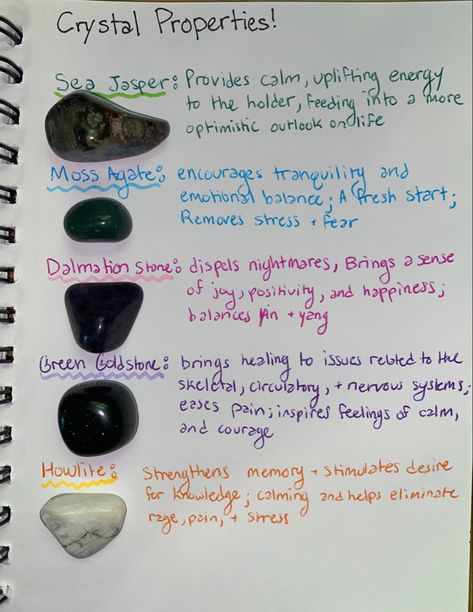 Crystal Properties!
Sea Jasper: Provides calm, uplifting energy
to the holder, feeding into a more
optimistic outlook on life
Moss Agate: encourages tranquility and
emotional balance; A fresh start;
Removes stress + fear
Dalmation Stone: dispels nightmares, Brings a sense
of joy, positivity, and happiness;
balances Yin + yang
Green Goldstone: brings healing to issues related to the
skeletal, circulatory, + nervous systems;
eases pain; inspires feelings of calm,
and courage
Howlite: Strengthens memory + stimulates desire
for knowledge; calming and helps eliminate
rage, pain, + stress